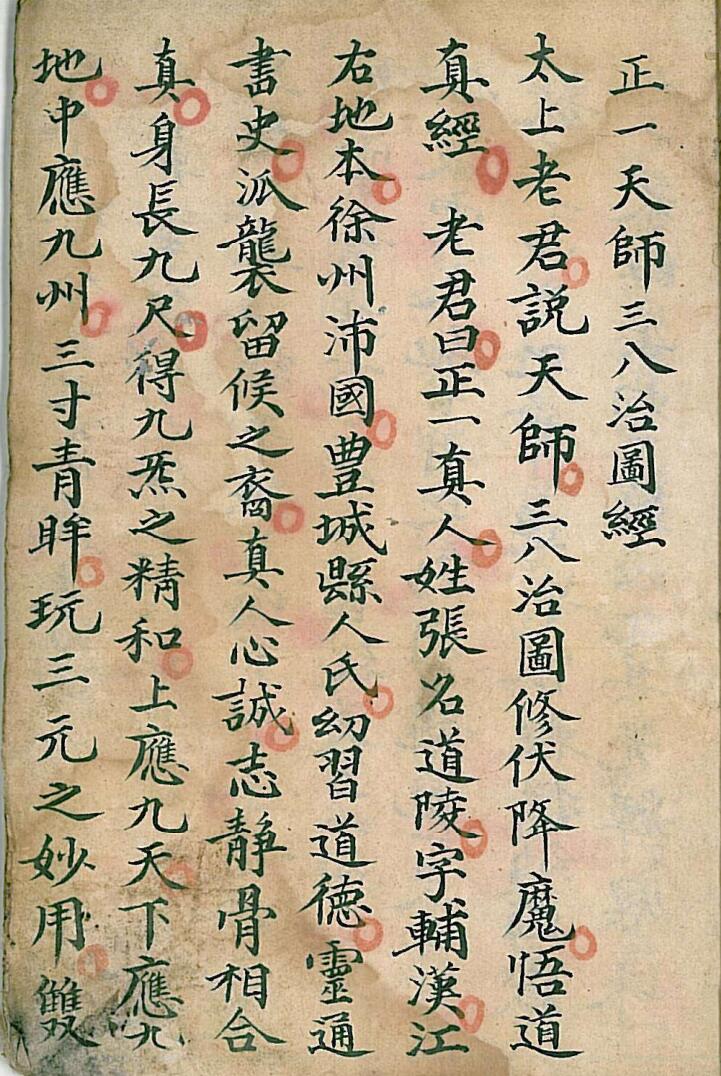 正一天師三八治圖經
太上老君説天師三八治圖修伏降魔悟道
真經 老君曰正一真人姓張名道陵字輔漢江
右地本徐州沛國豊城縣人氏幼習道德靈通
書史派襲留候之裔真人心誠志靜骨相合
真身長九尺得九炁之精和上應九天下應九
地中應九州三寸青眸玩三元之妙用雙